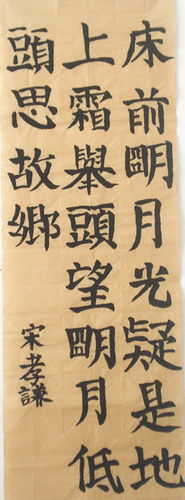 床前明月光疑是地
上霜舉頭望明月低
頭思故鄉
宋孝謙